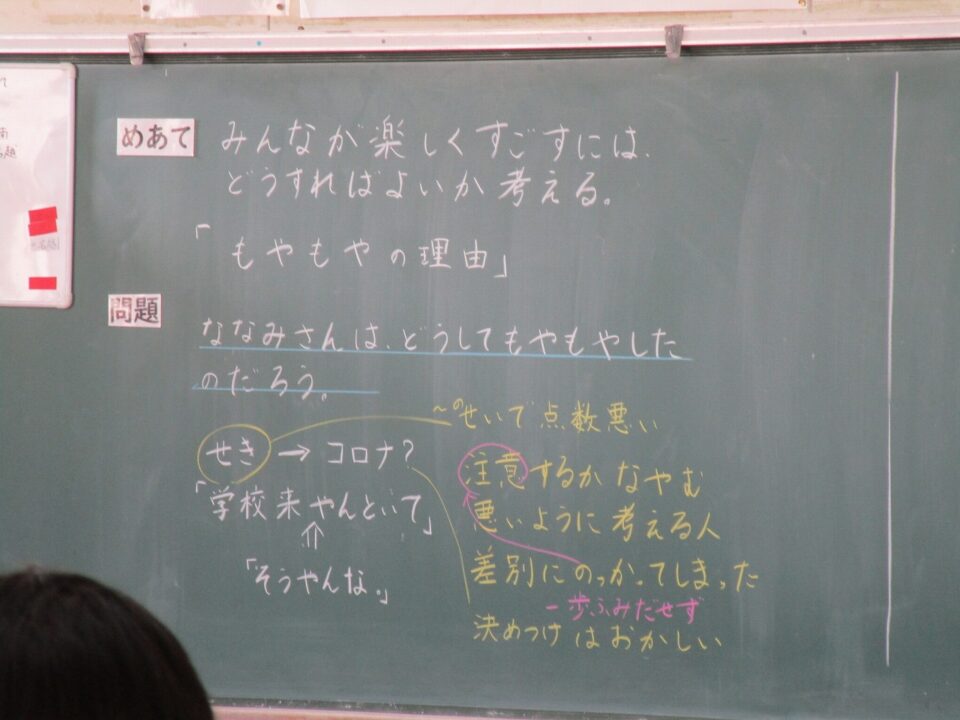 めあて みんなが楽しくすごすには、
どうすればよいか考える。
「もやもやの理由」
問題
ななみさんは、どうしてもやもやした
のだろう。
せき → コロナ?
「学校来やんといて」
⇑
「そうやんな。」
〜のせいで点数悪い
注意するかなやむ
悪いように考える人
差別にのっかってしまった
一歩ふみだせず
決めつけはおかしい